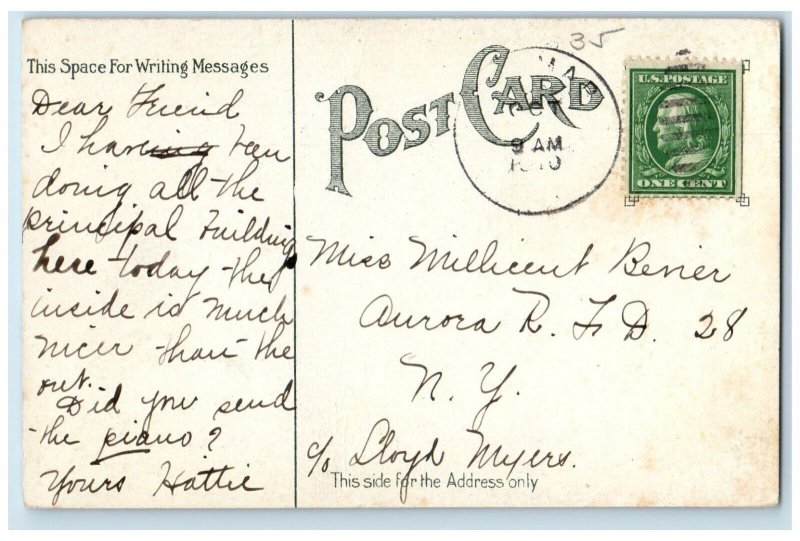 This Space For Writing Messages
Dear Friend
I have been
doing all the
principal building
here today they
inside is much
nicer than the
out.
Did you send
the piano?
Yours Hattie
35
POST CARD
OCT
9 AM
1910
U.S. POSTAGE
ONE CENT
Miss Millicent Bevier
Aurora R. F. D. 28
N. Y.
c/o Lloyd Myers.
This side for the Address only